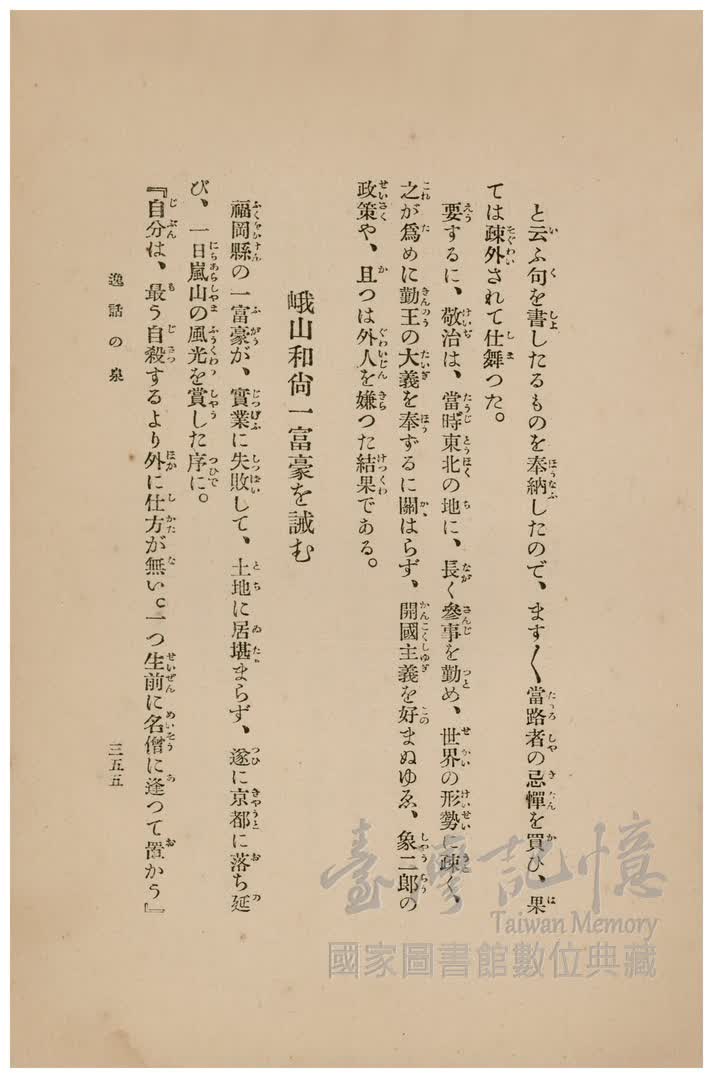 と云ふ句を書したるものを奉納したので、ます〱當路者の忌憚を買ひ、果
ては疎外されて仕舞つた。
要するに、敬治は、當時東北の地に、長く參事を勤め、世界の形勢に疎く、
之が爲めに勤王の大義を奉ずるに關はらず、開國主義を好まぬゆゑ、象二郎の
政策や、且つは外人を嫌つた結果である。
峨山和尙一富豪を誡む
福岡縣の一富豪が、實業に失敗して、土地に居堪まらず、遂に京都に落ち延
び、一日嵐山の風光を賞した序に。
『自分は、最う自殺するより外に仕方が無い。一つ生前に名僧に逢つて置かう』
逸話の泉
三五五
臺灣記憶
Taiwan Memory
國家圖書館數位典藏